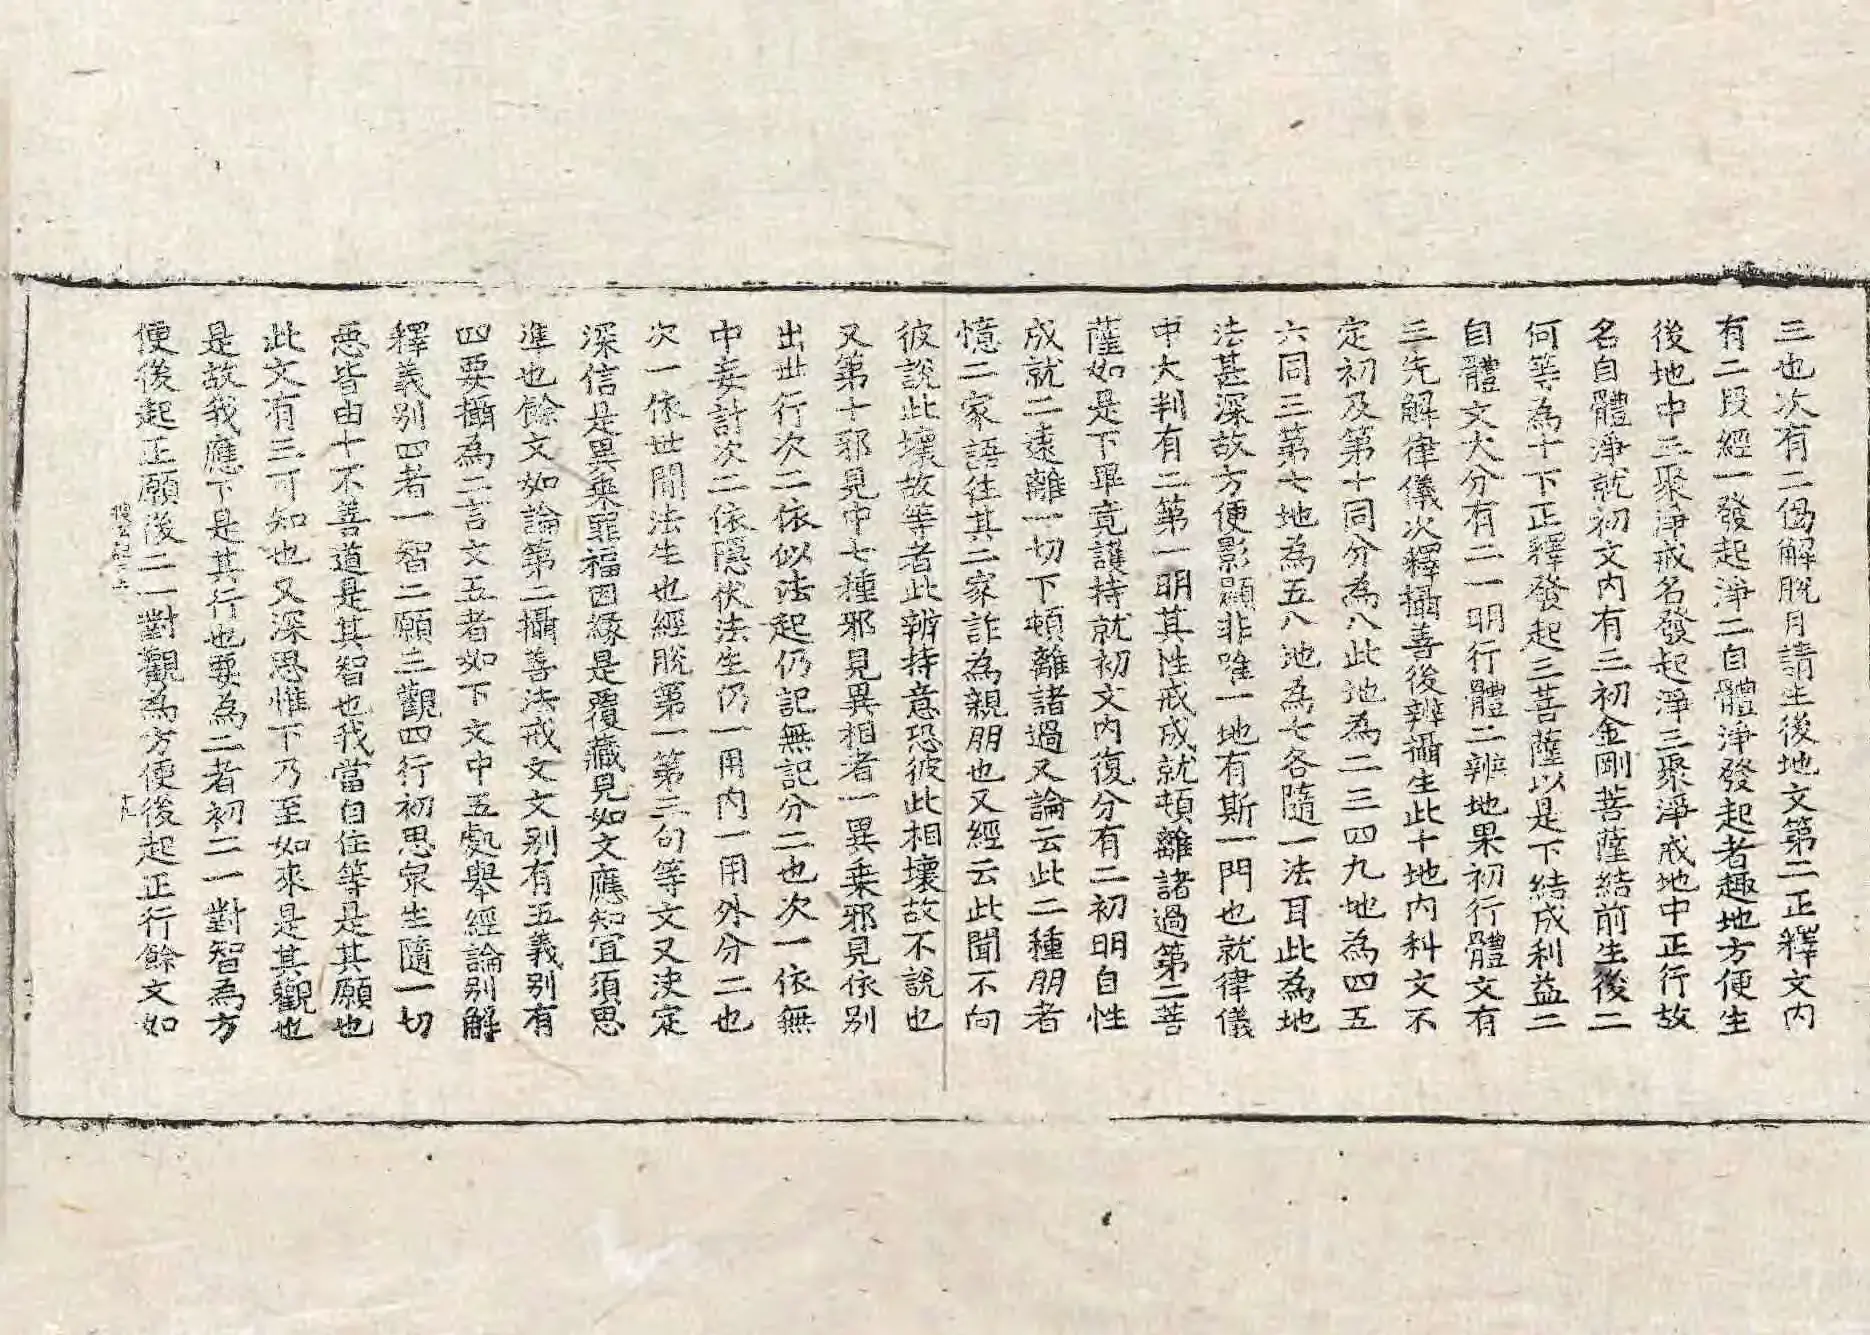 三也次有二偈解脫月請生後地文第二正釋文內
有二段經一發起淨二自體淨發起者趣地方便生
後地中三聚淨戒名發起淨三聚淨戒地中正行故
名自體淨就初文內有三初金剛菩薩結前生後二
何等為十下正釋發起三菩薩以是下結成利益二
自體文大分有二一明行體二辨地果初行體文有
三先解律儀次釋攝善後辨攝生此十地內科文不
定初及第十同分為八此地為二三四九地為四五
六同三第七地為五八地為七各隨一法耳此為地
法甚深故方便影顯非唯一地有斯一門也就律儀
中大判有二第一明其性戒成就頓離諸過第二菩
薩如是下畢竟護持就初文內復分有二初明自性
成就二遠離一切下頓離諸過又論云此二種朋者
憶二家語往其二家詐為親朋也又經云此聞不向
彼說此壞故等者此辨持意恐彼此相壞故不說也
又第十邪見中七種邪見異相者一異乗邪見依別
出世行次二依似法起仍記無記分二也次一依無
中妄計次二依隱伏法生仍一用內一用外分二也
次一依世間法生也經脫第一第三句等文又決定
深信是異乗罪福因緣是覆藏見如文應知宜須思
準也餘文如論第二攝善法戒文文別有五義別有
四要攝為二言文五者如下文中五處舉經論別解
釋義別四者一智二願三觀四行初思衆生隨一切
惡皆由十不善道是其智也我當自住等是其願也
此文有三可知也又深思惟下乃至如來是其觀也
是故我應下是其行也要為二者初二一對智為方
便後起正願後二一對觀為方便後起正行餘文如
十九